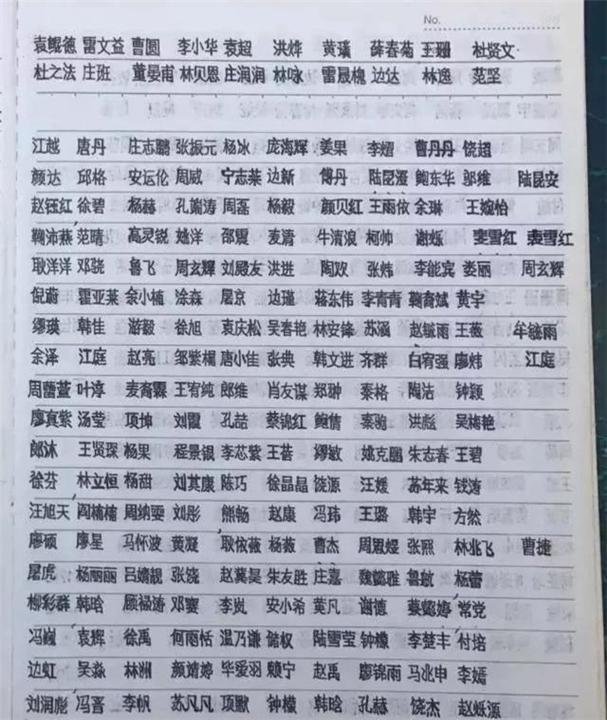 No.
袁鲲德 雷文益 曹圆 李小华 袁超 洪烨 黄瑱 薛春菊 王珊 杜贤文
杜之法 庄班 董晏甫 林贝恩 庄润润 林咏 雷晟槐 边达 林逸 范坚
江越 唐丹 庄志鹏 张振元 杨冰 庞海辉 姜果 李熠 曹丹丹 饶超
颜达 邱格 安运伦 周威 宁志莱 边新 傅丹 陆昆滢 鲍东华 邬维 陆昆安
赵钰红 徐碧 杨赫 孔嵩涛 周磊 杨毅 颜贝红 王雨依 余琳 王婉怡
鞠沛燕 范晴 高灵锐 姚洋 邵震 麦清 牛滇浪 柯帅 谢烁 娄雪红
耿洋洋 邓骁 鲁飞 周玄辉 刘殿友 洪进 陶双 张炜 李能宾 娄丽 周玄辉
倪蔚 霍亚莱 余小楠 涂森 屠京 边瑾 蒋东伟 李青青 鞠育斌 黄宇
缪瑛 韩佳 游毅 徐旭 袁庆松 吴春艳 林安锋 苏涵 赵毓雨 王薇 牟毓雨
余泽 江庭 赵亮 邬繁楣 唐小佳 张典 韩文进 齐群 白宥强 廖炜 江庭
周蕾萱 叶淳 麦裔霖 王宥纯 郎维 肖友谋 郑翀 秦格 陶洁 钟颖
廖真紫 汤莹 项坤 刘霞 孔喆 蔡锦红 鲍倩 秦驰 洪彪 吴梅艳
郎沐 王贤琛 杨果 程景银 李芯裳 王荟 缪敏 姚克鹏 朱志春 王碧
徐芬 林立恒 杨甜 刘其康 陈巧 徐晶晶 饶源 汪媛 苏年来 钱涛
汪旭天 阎楠楠 周纳雯 刘彤 熊畅 赵康 冯玮 王璐 韩宇 方然
廖硕 廖星 马怀波 黄凝 耿依薇 杨薇 曹杰 周恩煜 张熙 林兆飞 曹捷
屠虎 杨丽丽 吕婧靓 张饶 赵冀昊 朱友胜 庄嘉 魏懿雅 鲁敏 杨蕾
柳彩群 韩晗 顾福涛 邓赛 李岚 安小希 黄凡 谢德 蔡懿婷 常党
冯巍 袁辉 徐禹 何雨恬 温乃谦 储权 陆雪莹 钟檬 李楚丰 付培
边虹 吴淼 林洲 颜婧婷 毕爱羽 赖宁 赵禹 廖锦雨 马兆申 李嫣
刘润彪 冯晋 李帆 苏凡凡 项默 钟檬 韩晗 孔赫 饶杰 赵烁源